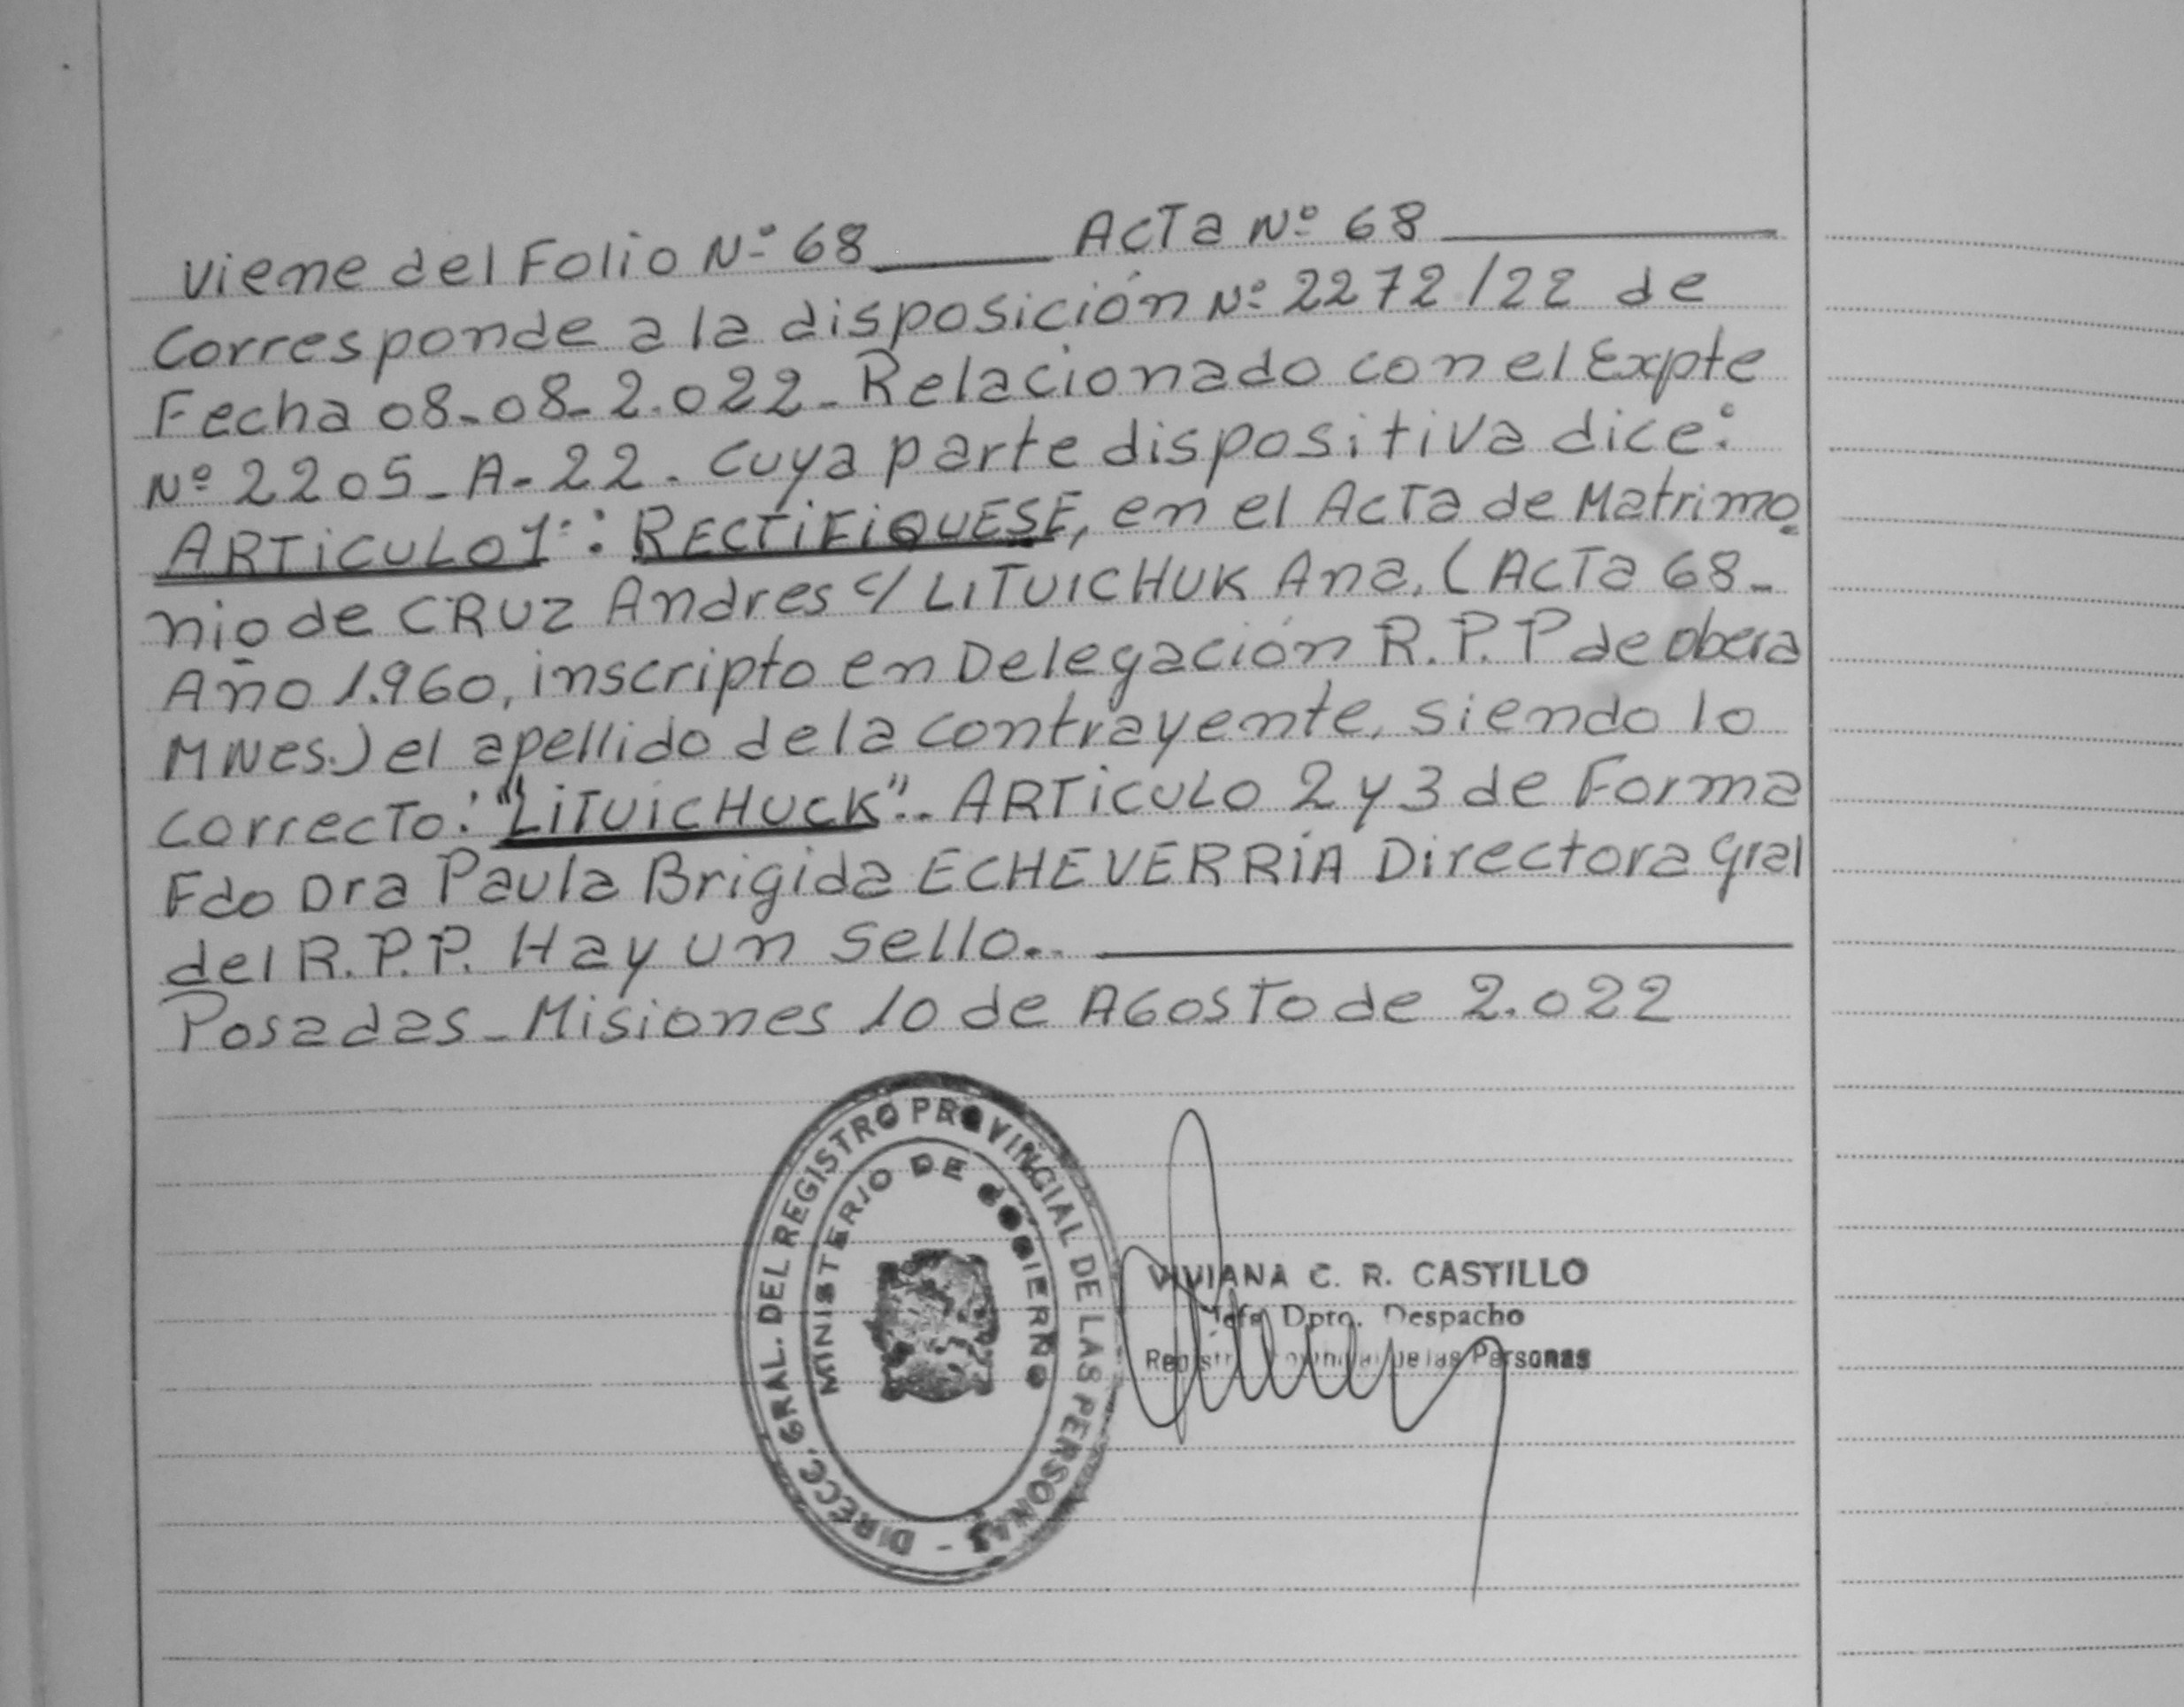 Viene del Folio Nº 68 ____ Acta Nº 68 ____
Corresponde a la disposición Nº 2272/22 de
Fecha 08-08-2.022- Relacionado con el Expte
Nº 2205-A-22. Cuya parte dispositiva dice:
ARTICULO 1º: RECTIFIQUESE, en el Acta de Matrimo
nio de CRUZ Andres c/ LITUICHUK Ana. (Acta 68-
Año 1.960, inscripto en Delegación R.P.P de obera
MNes.) el apellido de la contrayente, siendo lo
correcto: "LITUICHUCK".. ARTICULO 2 y 3 de Forma
Fdo Dra Paula Brigida ECHEVERRÍA Directora Gral
del R.P.P. Hay un Sello..
Posadas-Misiones 10 de Agosto de 2.022
DIRECC. GRAL. DEL REGISTRO PROVINCIAL DE LAS PERSONAS -
MINISTERIO DE GOBIERNO
VIVIANA C. R. CASTILLO
Jefa Dpto. Despacho
Registro Provincial de las Personas